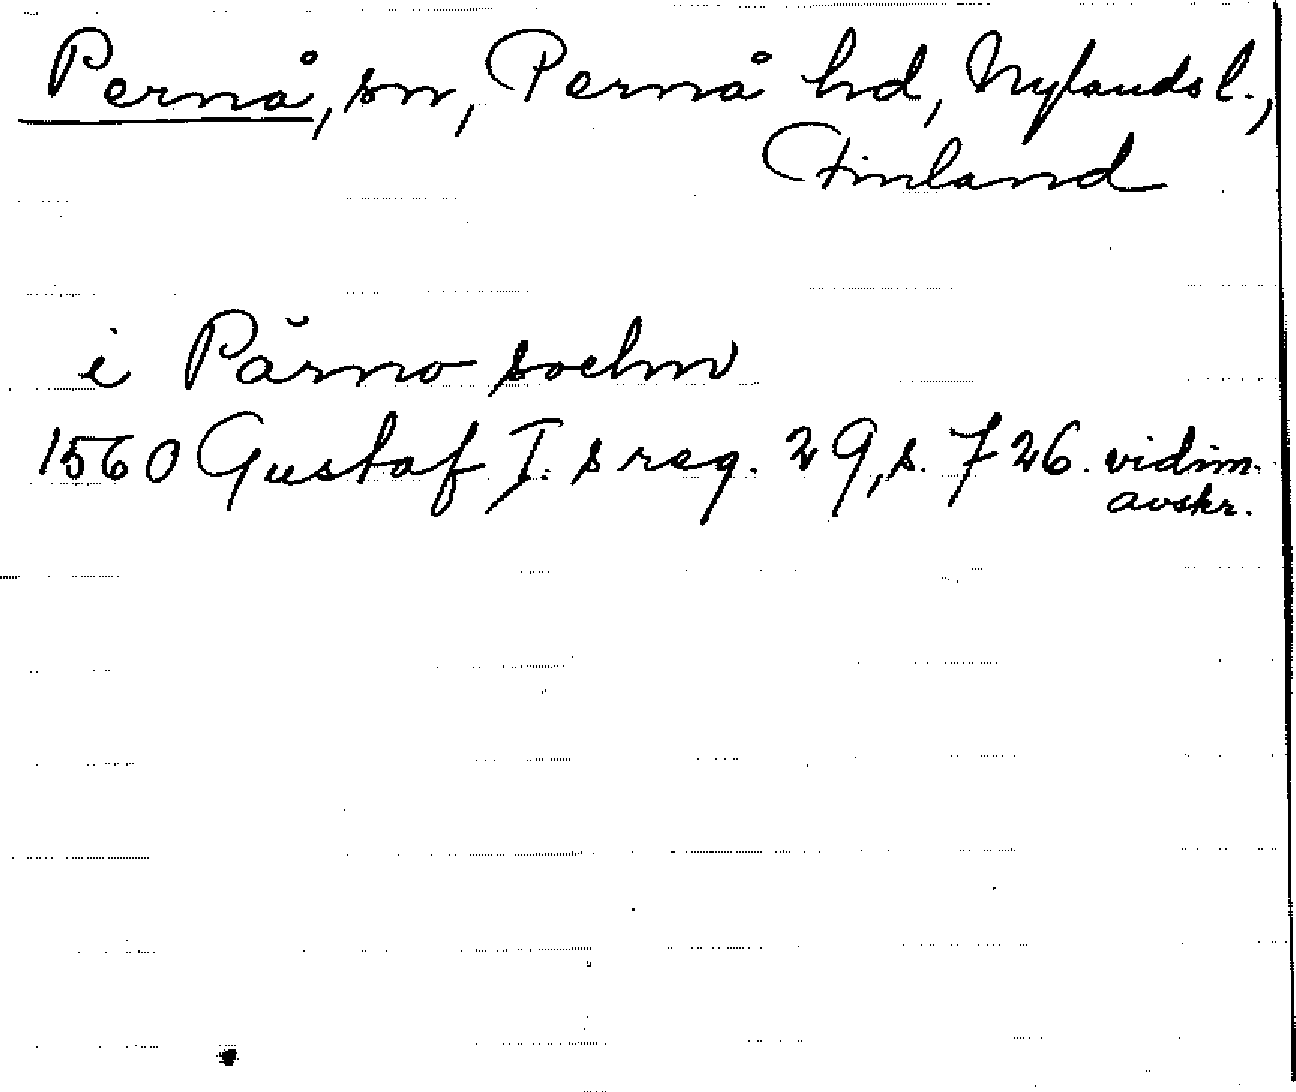 Pernå, sn, Pernå hd, Nylands l.,
Finland
i Pärno sochn
1560 Gustaf I:s reg. 29, s. 726. vidim.
avskr.